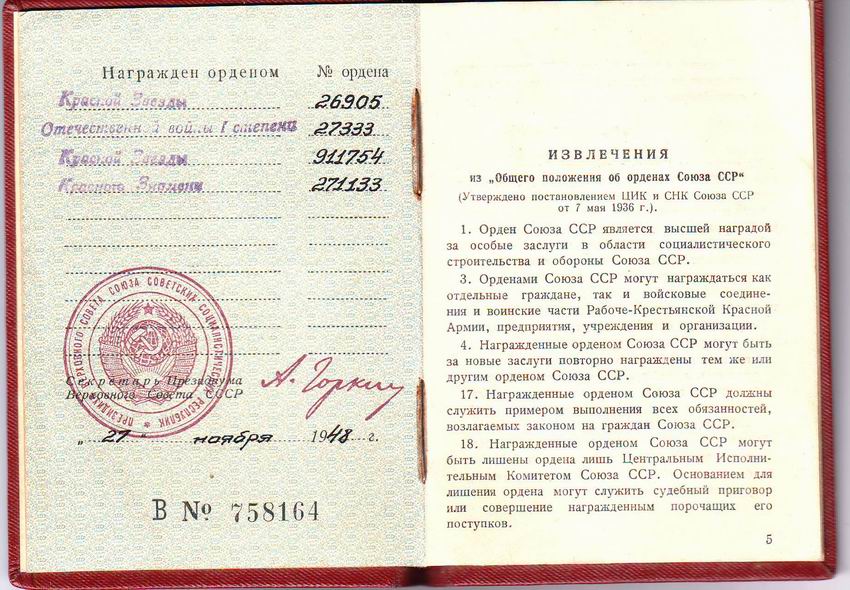 Награжден орденом № ордена
Красной Звезды 26905
Отечественной войны I степени 27333
Красной Звезды 911754
Красного Знамени 271133
ПРЕЗИДИУМ ВЕРХОВНОГО СОВЕТА СОЮЗА СОВЕТСКИХ СОЦИАЛИСТИЧЕСКИХ РЕСПУБЛИК
Секретарь Президиума
Верховного Совета СССР
А. Горкин
„ 27 " ноября 1948 г.
В № 758164
ИЗВЛЕЧЕНИЯ
из „Общего положения об орденах Союза ССР"
(Утверждено постановлением ЦИК и СНК Союза ССР
от 7 мая 1936 г.).
1. Орден Союза ССР является высшей наградой
за особые заслуги в области социалистического
строительства и обороны Союза ССР.
3. Орденами Союза ССР могут награждаться как
отдельные граждане, так и войсковые соедине-
ния и воинские части Рабоче-Крестьянской Красной
Армии, предприятия, учреждения и организации.
4. Награжденные орденом Союза ССР могут быть
за новые заслуги повторно награждены тем же или
другим орденом Союза ССР.
17. Награжденные орденом Союза ССР должны
служить примером выполнения всех обязанностей,
возлагаемых законом на граждан Союза ССР.
18. Награжденные орденом Союза ССР могут
быть лишены ордена лишь Центральным Исполни-
тельным Комитетом Союза ССР. Основанием для
лишения ордена могут служить судебный приговор
или совершение награжденным порочащих его
поступков.
5